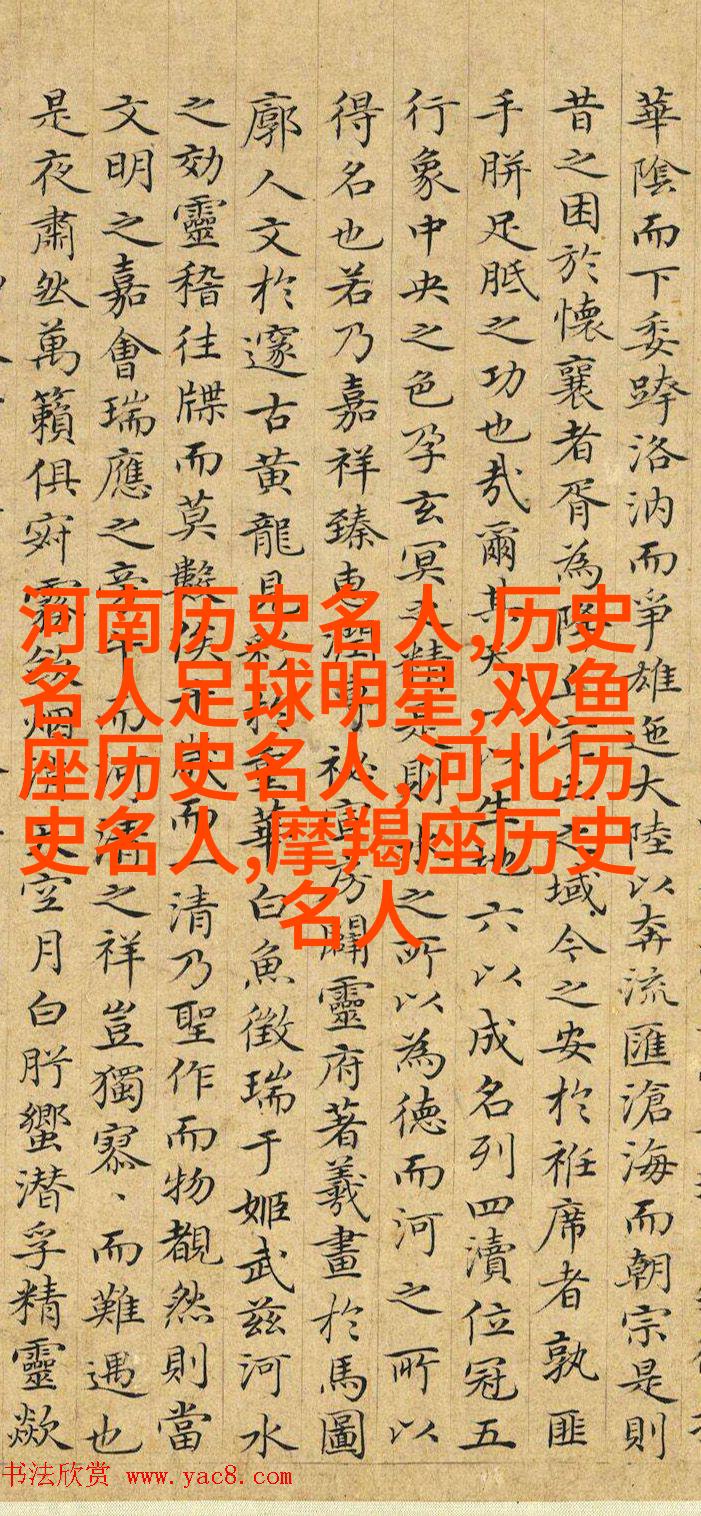 華陰而下委洛汭而爭雄迤大陸以奔流匯滄海而朝宗是則
昔之困於懷襄者胥為降丘宅土之域今之安於袵席者孰匪
手胼足胝之功也哉爾其天一以生地六以成名列四瀆位冠五
行象中央之色孕玄冥之精是則水之所以為德而河之所以
得名也若乃嘉祥臻惠澤專祕宮旁闢靈府著羲畫於馬圖
廓人文於邃古黃龍見彩於重華白魚徵瑞于姬武茲河水
之効靈稽往牒而莫數俟千歲而一清乃聖作而物覩然則當
文明之嘉會瑞應之年而河清之祥豈獨寥、而難遇也
是夜肅然萬籟俱寂霧斂烟消天空月白肸蠁潛孚精靈歘
河南历史名人,历史
名人足球明星,双鱼
座历史名人,河北历
史名人,摩羯座历史
名人
书法欣赏 www.yac8.com